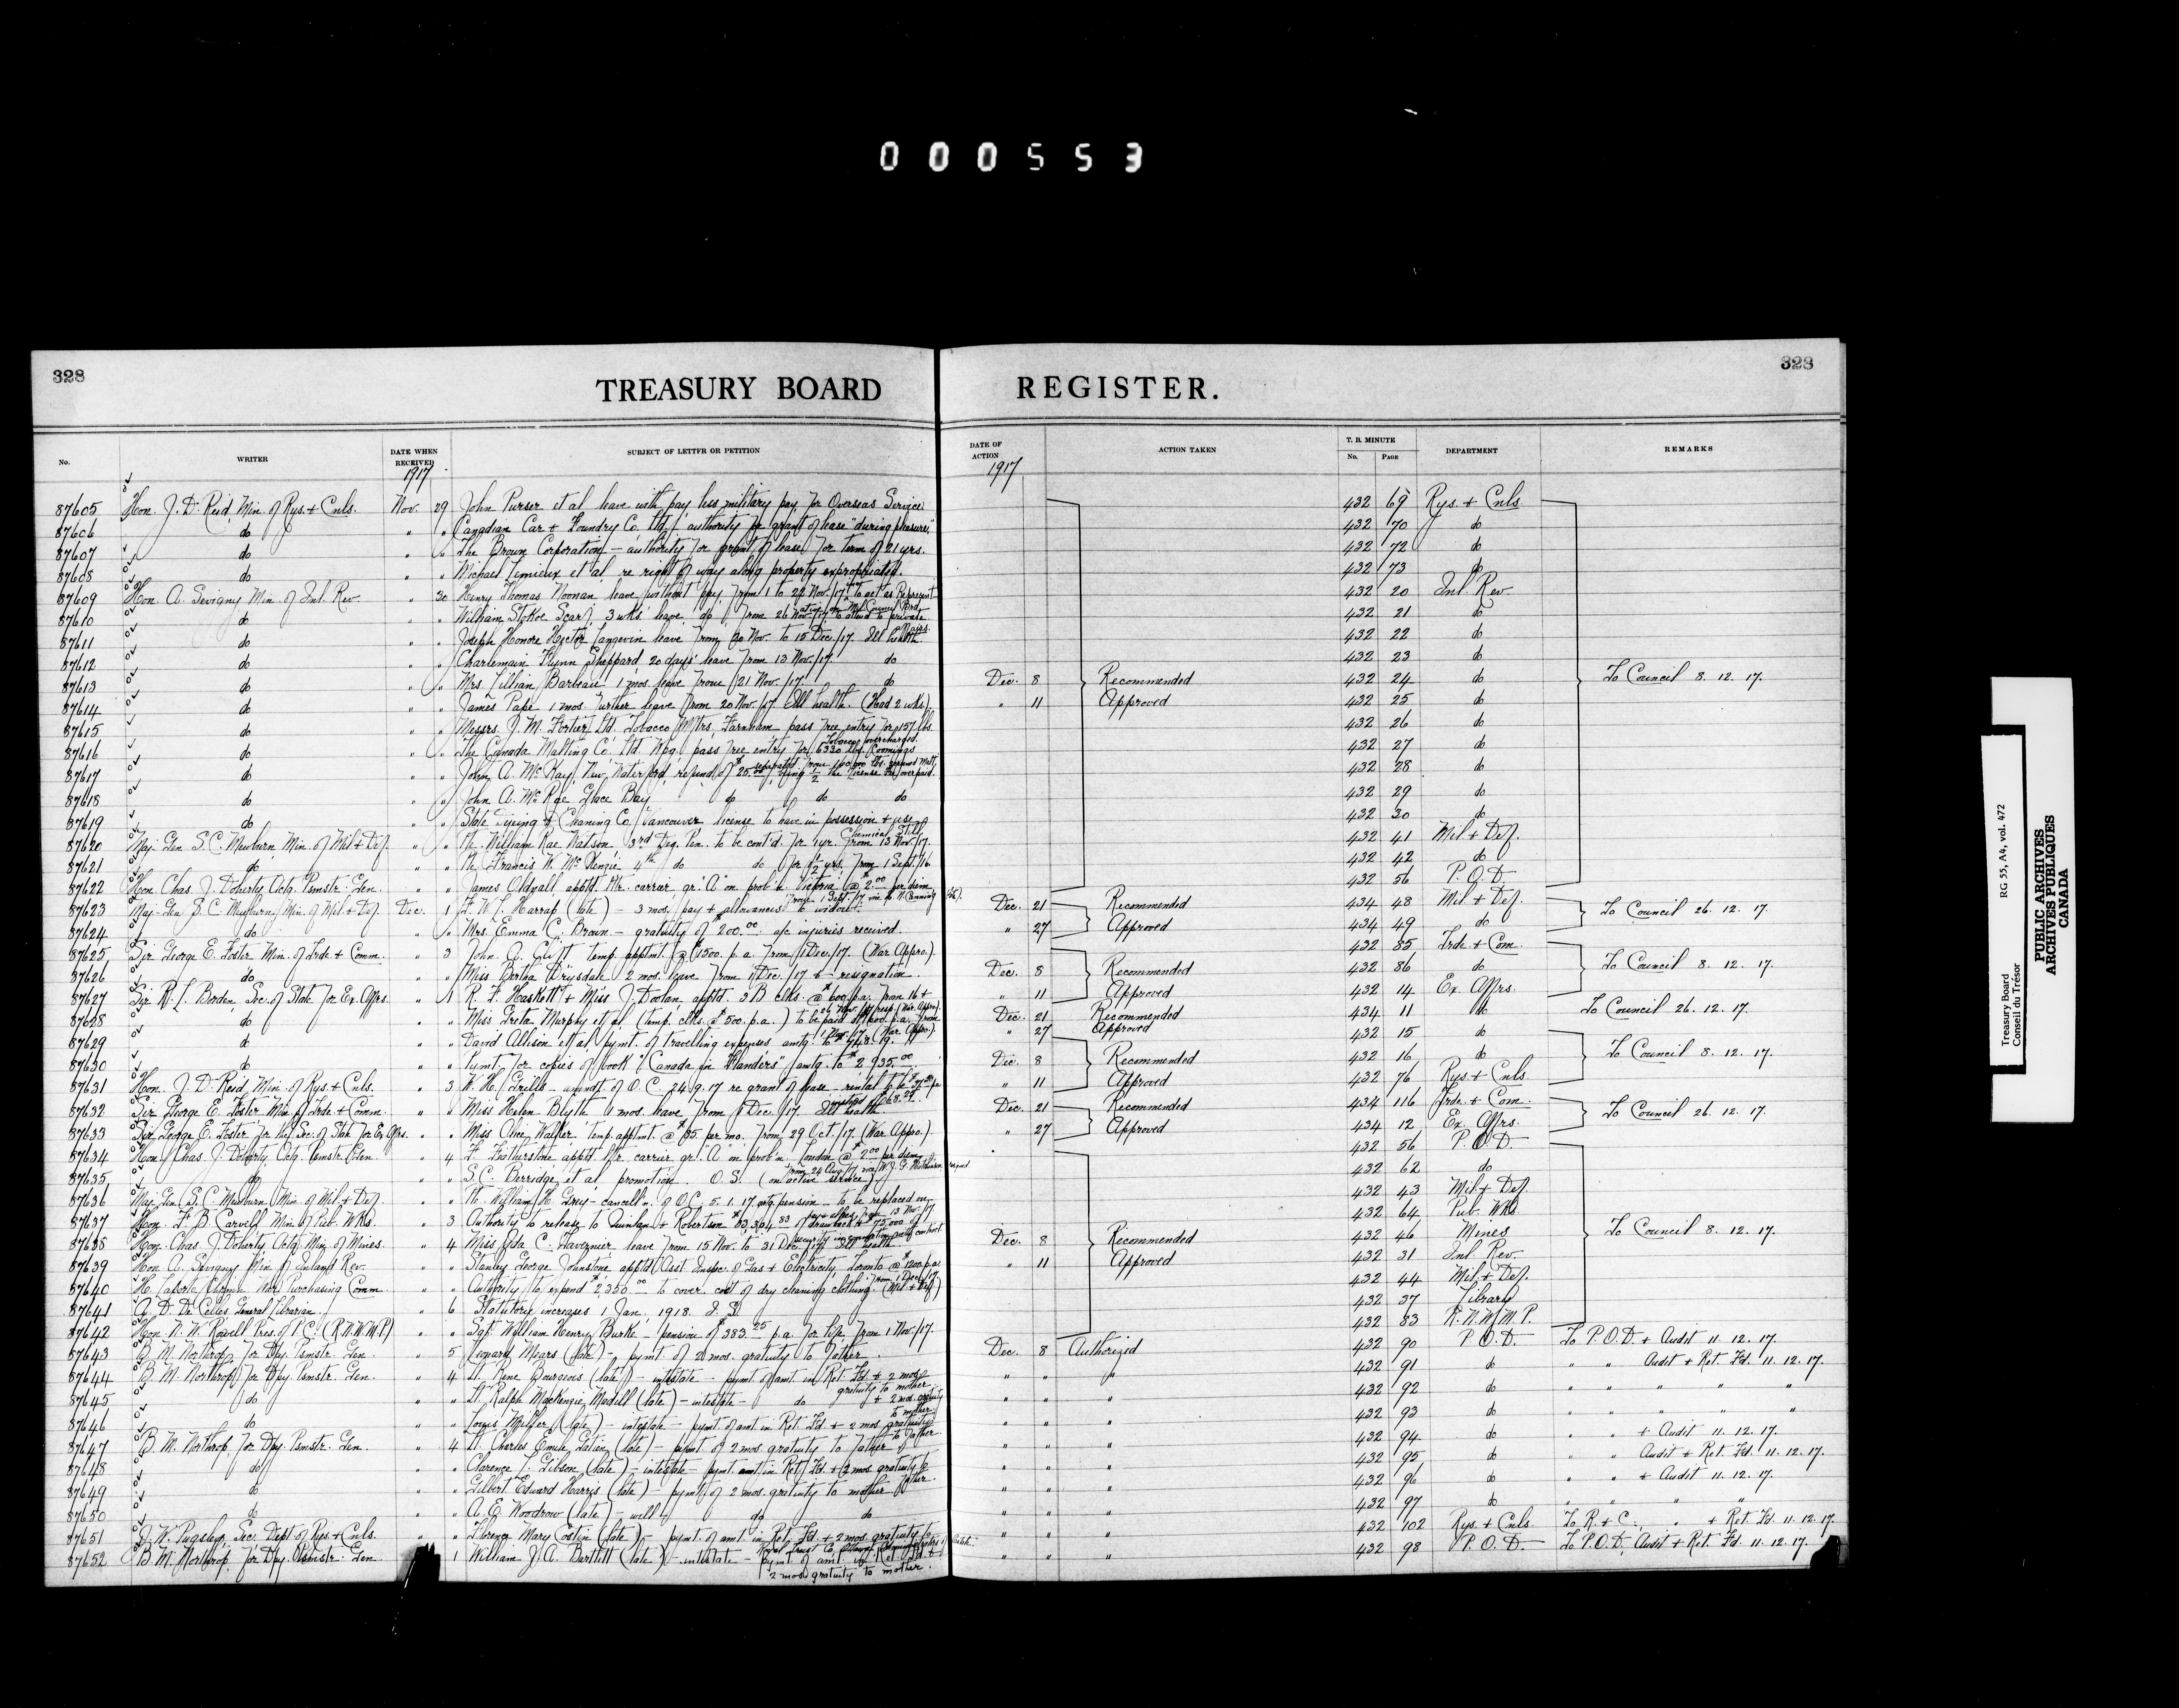 000553
328
TREASURY BOARD REGISTER.
328
No. WRITER DATE WHEN RECEIVED SUBJECT OF LETTER OR PETITION DATE OF ACTION ACTION TAKEN T. B. MINUTE No. PAGE DEPARTMENT REMARKS
1917 1917
87605 Hon. J. D. Reid, Min. of Rys. + Cnls. Nov. 29 John Purser et al leave with pay, less military pay, for Overseas Service 432 69 Rys. + Cnls
87606 do " " Canadian Car + Foundry Co. Ltd. - authority for grant of lease "during pleasure." 432 70 do
87607 do " " The Brown Corporation - authority for grant of lease for term of 21 yrs. 432 72 do
87608 do " " Michael Lemieux et al re right of way along property expropriated. 432 73 do
87609 Hon. A. Sevigny Min. of Inl. Rev. " 30 Henry Thomas Noonan leave without pay from 1 to 22 Nov. 17 to act as Represent 432 20 Inl. Rev.
87610 do " " William Stokoe Scarf, 3 wks. leave do from 26 Nov. 17 to attend to private 432 21 do
87611 do " " Joseph Honore Hector Langevin leave from 30 Nov. to 15 Dec. /17. Ill health 432 22 do
87612 do " " Charlemain Flynn Sheppard 20 days' leave from 13 Nov. /17. do 432 23 do
87613 do " " Mrs. Lillian Barbeau - 1 mos. leave from 21 Nov. 17. do Dec. 8 Recommended 432 24 do To Council 8. 12. 17.
87614 do " " James Pape 1 mos. further leave from 20 Nov. /17 Ill health. (Had 2 wks). " 11 Approved 432 25 do
87615 do " " Messrs J. M. Fortier Ltd. Tobacco Mfrs. Farnham pass free entry for 157 lbs. 432 26 do
Tobacco overcharged.
87616 do " " The Canada Malting Co. Ltd. Wpg. pass free entry for 6330 lbs. Coomings 432 27 do
separated from 100,000 lbs. ground malt.
87617 do " " John A. McKay, New Waterford, refund of $25.00, being ½ the license fee overpaid. 432 28 do
87618 do " " John A. McRae Glace Bay do do do 432 29 do
87619 do " " State Dyeing + Cleaning Co. Vancouver license to have in possession + use 432 30 do
Chemical Still
87620 Maj. Gen. S. C. Mewburn Min. of Mil. + Def. " " Pte William Rae Watson 3rd Deg. Pen. to be cont'd. for 1 yr. from 13 Nov. /17. 432 41 Mil + Def.
87621 do " " Pte Francis W. McKenzie 4th do do for 1½ yrs. from 1 Sept. /16. 432 42 do
87622 Hon. Chas. J. Doherty, Actg. Psmstr. Gen. " " James Oldnall apptd. ltr. carrier gr. "A" on prob'n Victoria @ $2.00 per diem 432 56 P.O.D.
87623 Maj. Gen. S. C. Mewburn, Min. of Mil + Def. Dec. 1 F. W. L. Harrap (late) - 3 mos. pay + allowances to widow. Dec. 21 Recommended 434 48 Mil + Def. To Council 26. 12. 17.
87624 do " " Mrs. Emma C. Brown - gratuity of $200.00 a/c injuries received. " 27 Approved 434 49 do
87625 Sir George E. Foster Min. of Trde. + Comm. " 3 John A. Clift temp. apptmt. @ $1500. p.a. from 1 Dec. /17. (War Appro.) 432 85 Trde. + Com.
87626 do " " Miss Bertha Drysdale 2 mos. leave from 1 Dec. /17 + resignation. Dec. 8 Recommended 432 86 do To Council 8. 12. 17.
87627 Sir R. L. Borden, Sec. of State for Ex. Affrs. " 1 R. F. Haskett + Miss J. Doolan, apptd. 3 B clks. @ $600. p.a. from 16 + " 11 Approved 432 14 Ex. Affrs.
26 Nov. /17 resp. (War. Appro.)
87628 do " " Miss Greta Murphy et al (temp. clks. @ $500. p.a.) to be paid @ $600. p.a. from Dec. 21 Recommended 434 11 do To Council 26. 12. 17.
1 Nov. /17. (War Appro.) " 27 Approved
87629 do " " David Allison et al pymt. of travelling expenses amtg. to $948.19. 432 15 do
87630 do " " Pymt. for copies of book "Canada in Flanders" amtg. to $2,935.00 Dec. 8 Recommended 432 16 do To Council 8. 12. 17.
87631 Hon. J. D. Reid, Min. of Rys. + Cnls. " 3 W. H. Grills - amndt. of O.C. 24. 9. 17 re grant of lease - rental to be " 11 Approved 432 76 Rys + Cnls
87632 Sir George E. Foster Min. of Trde. + Comm. " " Miss Helen Blyth 1 mos. leave from 1 Dec. /17. Ill health. Dec. 21 Recommended 434 116 Trde. + Com. To Council 26. 12. 17.
87633 Sir George E. Foster for the Sec. of State for Ex. Affrs. " " Miss Alice Walker temp. apptmt. @ $85. per mo. from 29 Oct. /17. (War Appro.) " 27 Approved 434 12 Ex. Affrs.
87634 Hon. Chas. J. Doherty, Actg. Psmstr. Gen. " 4 F. Fetherstone apptd ltr. carrier gr. "A" on prob'n. London @ $2.00 per diem 432 56 P.O.D.
87635 do " " S. C. Berridge, et al promotion. O.S. (on active service) 432 62 do
87636 Maj. Gen. S. C. Mewburn Min. of Mil. + Def. " " Pte. William H. Grey - cancell'n. of O.C. 5. 1. 17 grtg. pension - to be replaced on 432 43 Mil. + Def.
pay + allces. from 13 Nov. /17
87637 Hon. F. B. Carvell Min. of Pub. Wks. " 3 Authority to release to Quinlan + Robertson $83,304.83 of drawback + $75,000 of 432 64 Pub. Wks
87638 Hon. Chas. J. Doherty Actg. Min. of Mines. " 4 Miss Ida C. Tavernier leave from 15 Nov. to 31 Dec. /17. Ill health. Dec. 8 Recommended 432 46 Mines To Council 8. 12. 17.
87639 Hon. A. Sevigny Min. of Inland Rev. " " Stanley George Johnstone, apptd. Asst. Inspr. of Gas + Electricity, Toronto @ $1200. p.a. " 11 Approved 432 31 Inl. Rev.
from 1 Dec. /17.
87640 H. Laporte Chrmn. War Purchasing Comm. " " Authority to expend $2,350.00 to cover cost of dry cleaning clothing. (Mil + Def.) 432 44 Mil. + Def.
87641 A. D. DeCelles General Librarian. " 6 Statutory increases 1 Jan. 1918. I.S. 432 37 Library
87642 Hon. N. W. Rowell Pres. of P.C. (R.N.W.M.P.) " " Sgt. William Henry Burke - pension of $383.25 p.a. for life from 1 Nov. /17. 432 83 R.N.W.M.P.
87643 B. M. Northrop, for Dpy. Psmstr. Gen. " 5 Leonard Mears (late) - pymt. of 2 mos. gratuity to father. Dec. 8 Authorized 432 90 P.O.D. To P.O.D. + Audit 11. 12. 17.
87644 B. M. Northrop, for Dpy. Psmstr. Gen. " 4 Lt. Rene Bourgeois (late) - intestate - pymt. of amt. in Ret. Fd. + 2 mos. " " " 432 91 do " " Audit + Ret. Fd. 11. 12. 17.
gratuity to mother.
87645 do " " Lt. Ralph MacKenzie Madill (late) - intestate - do + 2 mos. gratuity " " " 432 92 do " " " " "
to mother
87646 do " " Louis Miller (late) - intestate - pymt. of amt. in Ret. Fd. + 2 mos. gratuity " " " 432 93 do " " " " "
to father.
87647 B. M. Northrop, for Dpy. Psmstr. Gen. " 4 Lt. Charles Emile Gatien (late) - pymt. of 2 mos. gratuity to father " " " 432 94 do " " + Audit 11. 12. 17.
87648 do " " Clarence J. Gibson (late) - intestate - pymt. amt. in Ret. Fd. + 2 mos. gratuity to " " " 432 95 do " " Audit + Ret. Fd. 11. 12. 17.
father.
87649 do " " Gilbert Edward Harris (late) - pymt. of 2 mos. gratuity to mother " " " 432 96 do " " + Audit 11. 12. 17.
87650 do " " A. E. Woodrow (late) - will - do do " " " 432 97 do " " " "
87651 J. W. Pugsley, Sec. Dept. of Rys. + Cnls. " " Florence Mary Costin (late) - pymt. of amt. in Ret. Fd. + 2 mos. gratuity to " " " 432 102 Rys + Cnls To R. + C. " + Ret. Fd. 11. 12. 17.
87652 B. M. Northrop, for Dpy. Psmstr. Gen. 1 William J. A. Bartlett (late) - intestate - pymt of amt. in Ret. Fd. + " " " 432 98 P.O.D. To P.O.D. Audit + Ret. Fd. 11. 12. 17.
2 mos. gratuity to mother.
Treasury Board RG 55, A4, vol. 472
Conseil du Trésor
PUBLIC ARCHIVES
ARCHIVES PUBLIQUES
CANADA